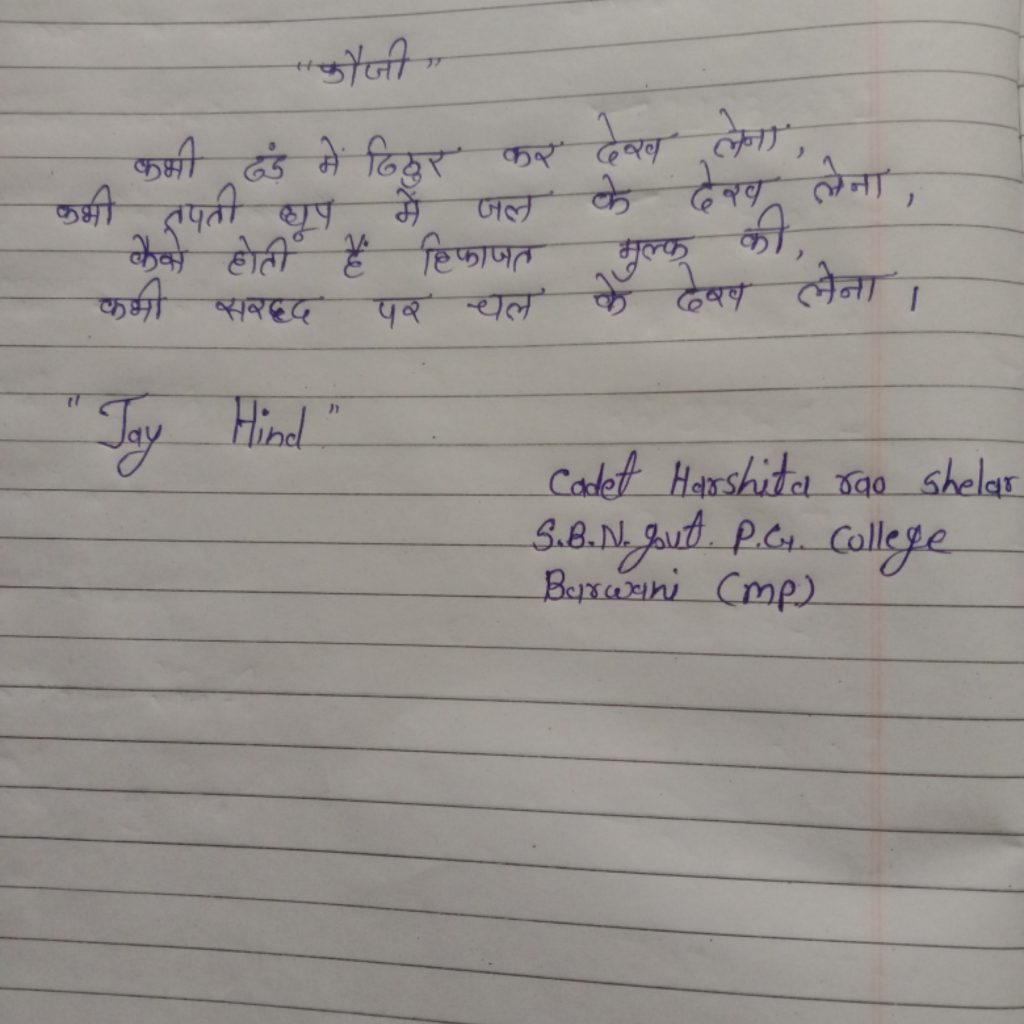 "फौजी"
कभी ठंड़ में ठिठुर कर देख लेना,
कभी तपती धूप में जल के देख लेना,
कैसे होती हैं हिफाजत मुल्क की,
कभी सरहद पर चल के देख लेना ।
"Jay Hind"
Cadet Harshita rao Shelar
S.B.N. govt. P.G. College
Barwani (mp)